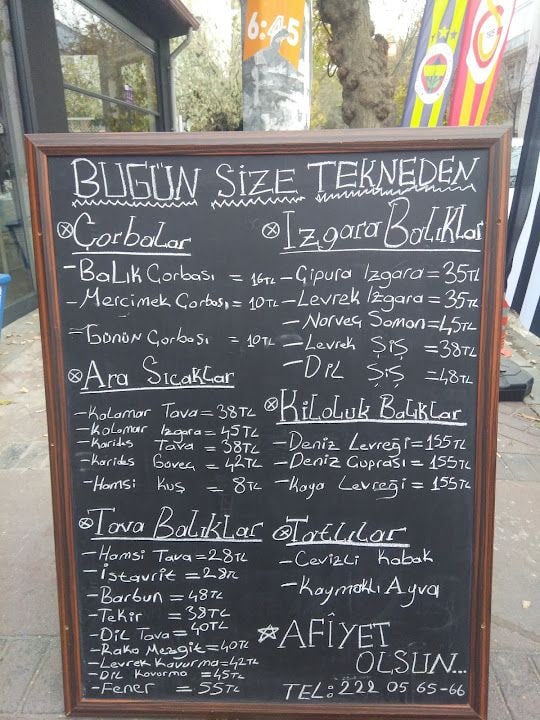 6:45
BUGÜN SİZE TEKNEDEN
Çorbalar
- Balık Çorbası = 16TL
- Mercimek Çorbası = 10TL
- Günün Çorbası = 10TL
Ara Sıcaklar
- Kalamar Tava = 38TL
- Kalamar Izgara = 45TL
- Karides Tava = 38TL
- Karides Güveç = 42TL
- Hamsi Kuş = 8TL
Tava Balıklar
- Hamsi Tava = 28TL
- İstavrit = 28TL
- Barbun = 48TL
- Tekir = 38TL
- Dil Tava = 40TL
- Rako Mezgit = 40TL
- Levrek Kavurma = 42TL
- Dil Kavurma = 45TL
- Fener = 55TL
Izgara Balıklar
- Çipura Izgara = 35TL
- Levrek Izgara = 35TL
- Norveç Somon = 45TL
- Levrek Şiş = 38TL
- Dil Şiş = 48TL
Kiloluk Balıklar
- Deniz Levreği = 155TL
- Deniz Çuprası = 155TL
- Kaya Levreği = 155TL
Tatlılar
- Cevizli Kabak
- Kaymaklı Ayva
AFİYET
OLSUN...
TEL: 222 05 65-66